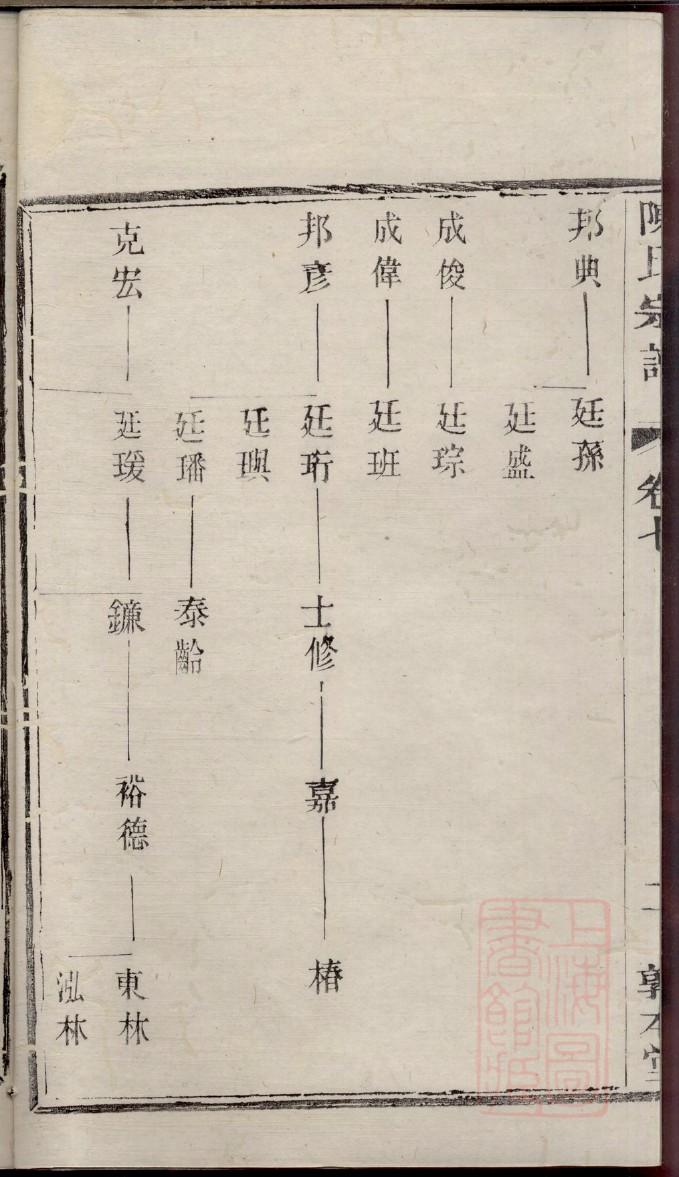 陳氏宗譜 卷七 二 敦本堂
邦典 廷孫
廷盛
成俊 廷琮
成偉 廷班
邦彦 廷珩 士修 嘉 椿
廷璵
廷璠 泰齡
克宏 廷瑗 鐮 裕德 東林
泓林
上海圖書館藏